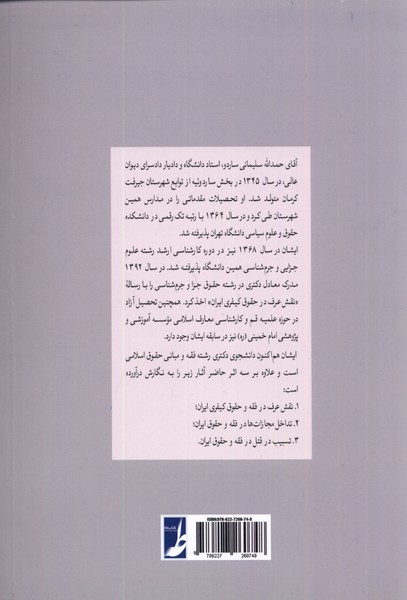 آقای حمدالله سلیمانی ساردو، استاد دانشگاه و دادیار دادسرای دیوان
عالی، در سال ۱۳۴۵ در بخش ساردوئیه از توابع شهرستان جیرفت
کرمان متولد شد. او تحصیلات مقدماتی را در مدارس همین
شهرستان طی کرد و در سال ۱۳۶۴ با رتبه تک رقمی در دانشکده
حقوق و علوم سیاسی دانشگاه تهران پذیرفته شد.
ایشان در سال ۱۳۶۸ نیز در دوره کارشناسی ارشد رشته علوم
جزایی و جرم‌شناسی همین دانشگاه پذیرفته شد. در سال ۱۳۹۲
مدرک معادل دکتری در رشته حقوق جزا و جرم‌شناسی را با رسالهٔ
«نقش عرف در حقوق کیفری ایران» اخذ کرد. همچنین تحصیل آزاد
در حوزه علمیه قم و کارشناسی معارف اسلامی مؤسسه آموزشی و
پژوهشی امام خمینی (ره) نیز در سابقه ایشان وجود دارد.
ایشان هم‌اکنون دانشجوی دکتری رشته فقه و مبانی حقوق اسلامی
است و علاوه بر سه اثر حاضر آثار زیر را به نگارش درآورده
است:
۱. نقش عرف در فقه و حقوق کیفری ایران؛
۲. تداخل مجازات‌ها در فقه و حقوق ایران؛
۳. تسبیب در قتل در فقه و حقوق ایران.
ISBN:978-622-7260-74-8
9 786227 260748